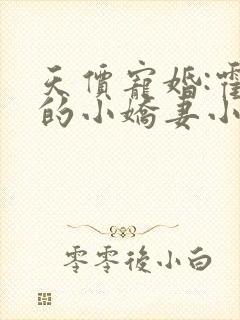 天價寵婚:
的小嬌妻小
零零後小白